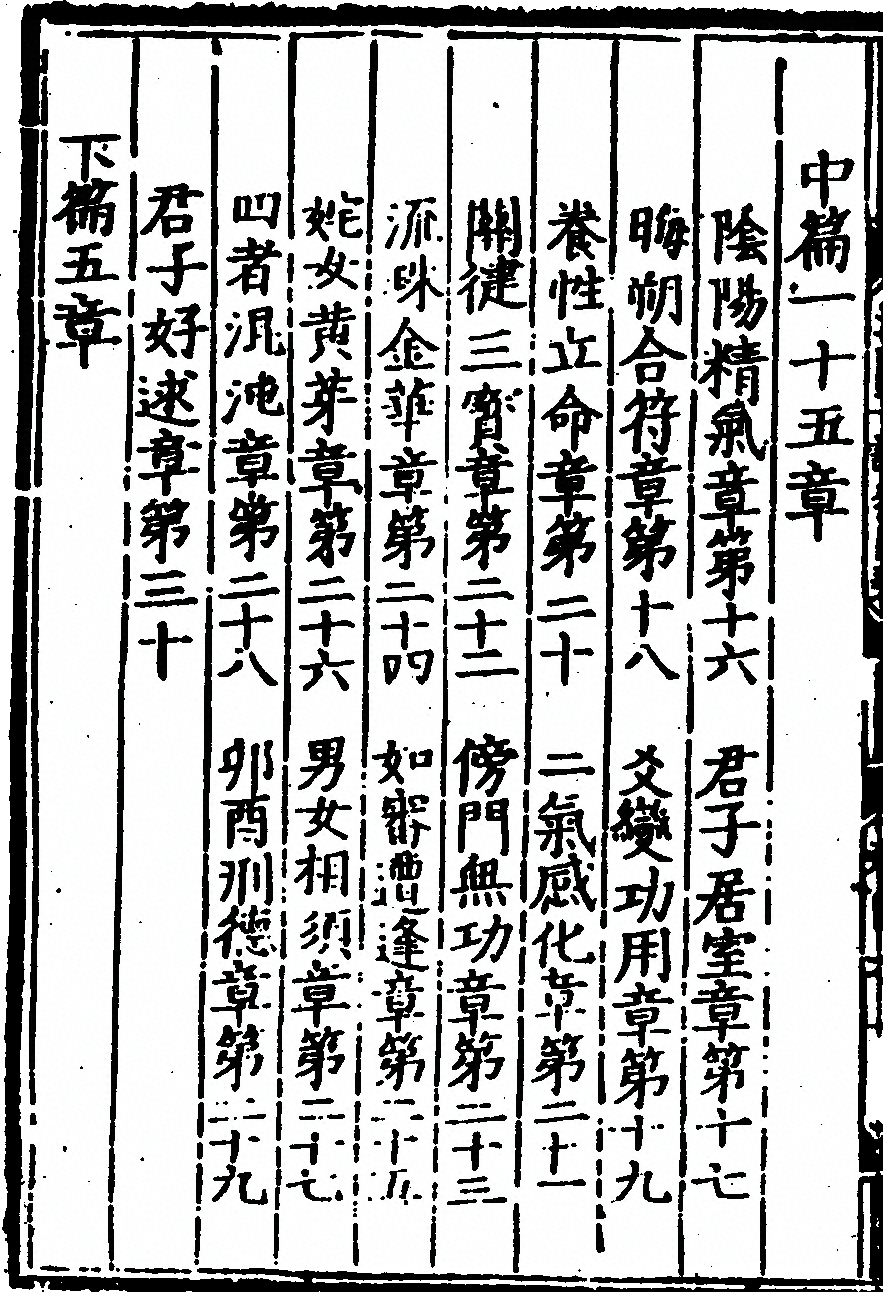 中篇一十五章
陰陽精氣章第十六　君子居室章第十七
晦朔合符章第十八　爻變功用章第十九
養性立命章第二十　二氣感化章第二十一
關鍵三寳章第二十二　傍門無功章第二十三
流珠金華章第二十四　如審遭逢章第二十五
姹女黄芽章第二十六　男女相須章第二十七
四者混沌章第二十八　卯酉刑德章第二十九
君子好逑章第三十
下篇五章